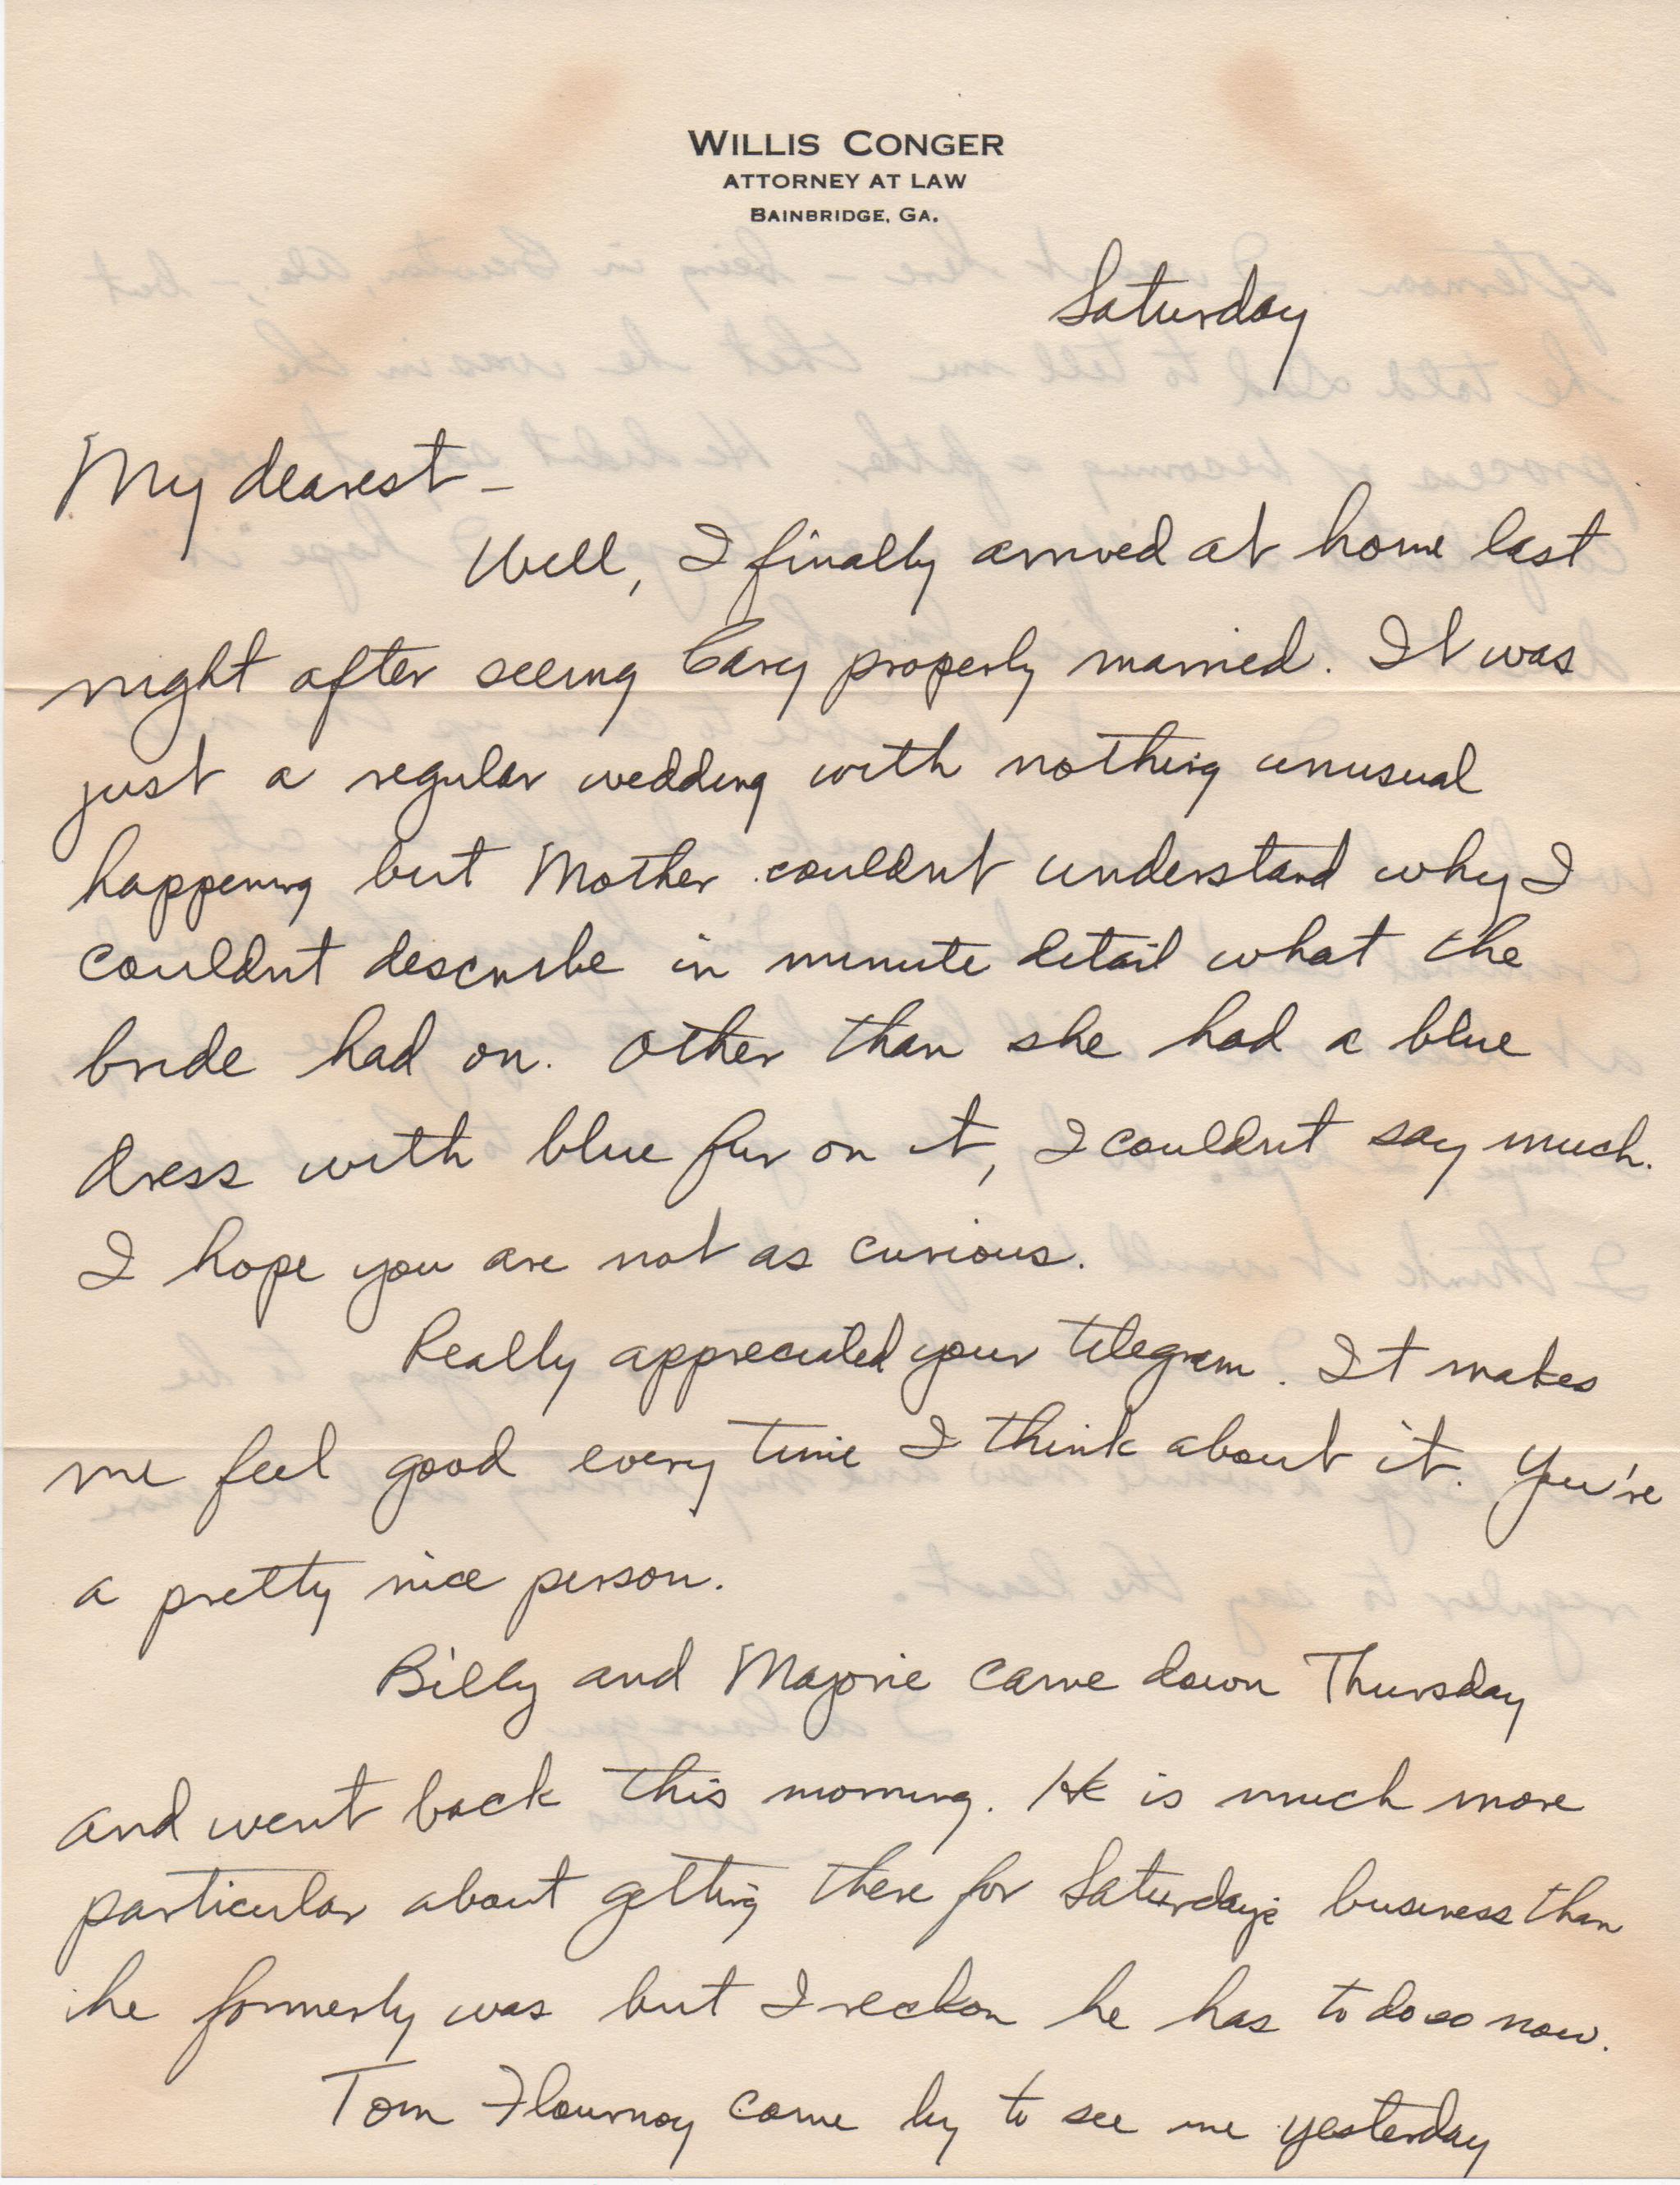 WILLIS CONGER
ATTORNEY AT LAW
BAINBRIDGE, GA.
Saturday
My dearest –
Well, I finally arrived at home last
night after seeing Cary properly married. It was
just a regular wedding with nothing unusual
happening but Mother couldnt understand why I
couldnt describe in minute detail what the
bride had on. Other than she had a blue
dress with blue fur on it, I couldnt say much.
I hope you are not as curious.
Really appreciated your telegram. It makes
me feel good every time I think about it. You're
a pretty nice person.
Billy and Majorie came down Thursday
and went back this morning. He is much more
particular about getting there for Saturday's business than
he formerly was but I reckon he has to do so now.
Tom Flournoy came by to see me yesterday